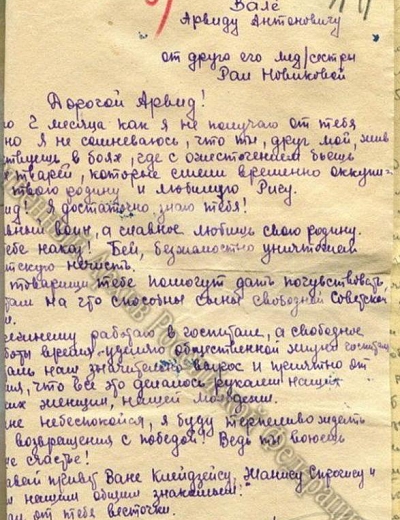 Вале
Арвиду Антоновичу
от друга его мед/сестры
Раи Новиковой
Дорогой Арвид!
2 месяца как я не получаю от тебя
но я не сомневаюсь, что ты, друг мой, жив
в боях, где с ожесточением бьешь
тварей, которые смели временно оккупи-
твою родину и любимую Ригу.
ид! Я достаточно знаю тебя!
воин, а славное любишь свою родину.
ебе наказ! Бей, безжалостно уничтожай
нечисть.
товарищи тебе помогут дать почувствовать,
там на что способны сыны свободной Советской
работаю в госпитале, а свободное
боты время уделяю общественной жизни госпиталя
наш значительно вырос и приятно от
ия, что все это делалось руками наших
их женщин, нашей молодежи.
не небеспокойся, я буду терпеливо ждать
возвращения с победой! Ведь ты воюешь
е счастье!
авай привет Ване Клейдзейсу, Жанису Спрогису и
м нашим общим знакомым!
от тебя весточки.